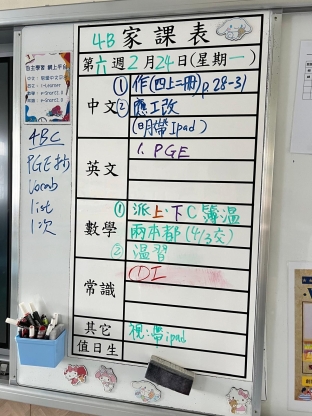 4B 家課表
第六週2月24日(星期一)
中文
① 作(四上二冊)p.28-31
② 應工改
(明帶Ipad)
英文
1. PGE
數學
① 派上.下C簿溫
兩本都(4/3交)
② 溫習
常識
① I
其它
視:帶ipad
值日生
4BC
PGE抄
Vocab
list
1次